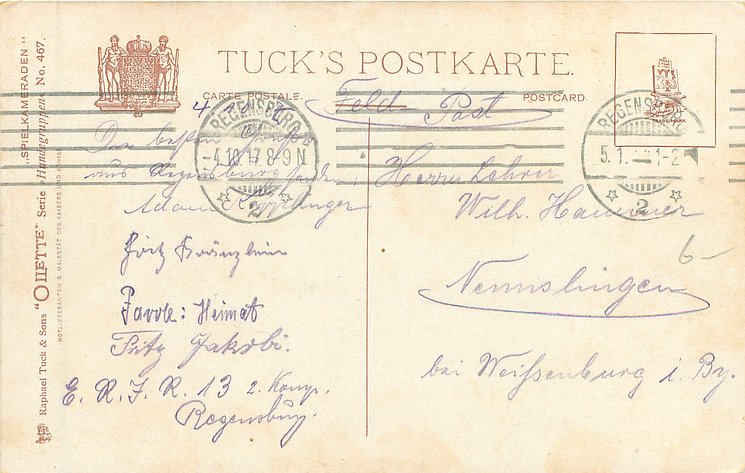 TUCK'S POSTKARTE.
CARTE POSTALE. POSTCARD.
Feld Post
REGENSBURG 2
-4.10.17. 8-9 N
REGENSB
5.1. 1-2
2
Die besten
aus Regensburg senden
Adam
Fritz Kränzlein
Parole: Heimat
Fritz Jakobi.
E. R. J. R. 13 2. Komp.
Regensburg.
Herrn Lehrer
Wilh. Hammer
Nennslingen
bei Weißenburg i. By.
6-
"SPIELKAMERADEN"
Raphael Tuck & Sons "OILETTE" Serie »Hundegruppen« No. 467.
HOFLIEFERANTEN S. MAJESTÄT DES KAISERS UND KÖNIGS